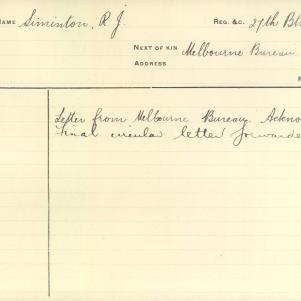 NAME Siminton, R J. REG. &C. 27th Bt
NEXT OF KIN Melbourne Bureau
ADDRESS
Letter from Melbourne Bureau. Ackno
final circular letter forwarde